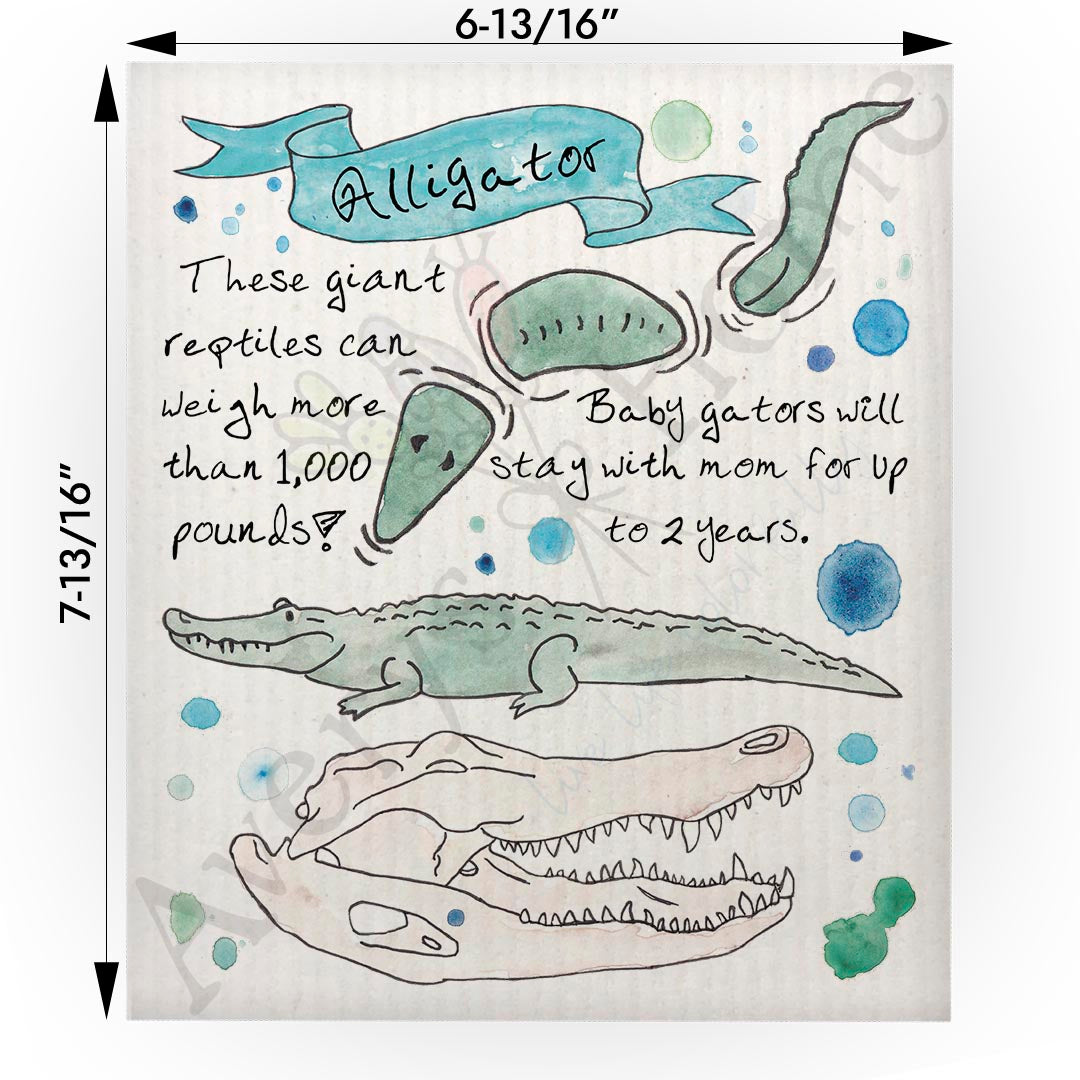 6-13/16”
7-13/16”
Alligator
These giant
reptiles can
weigh more
than 1,000
pounds!
Baby gators will
stay with mom for up
to 2 years.
Avery's Home